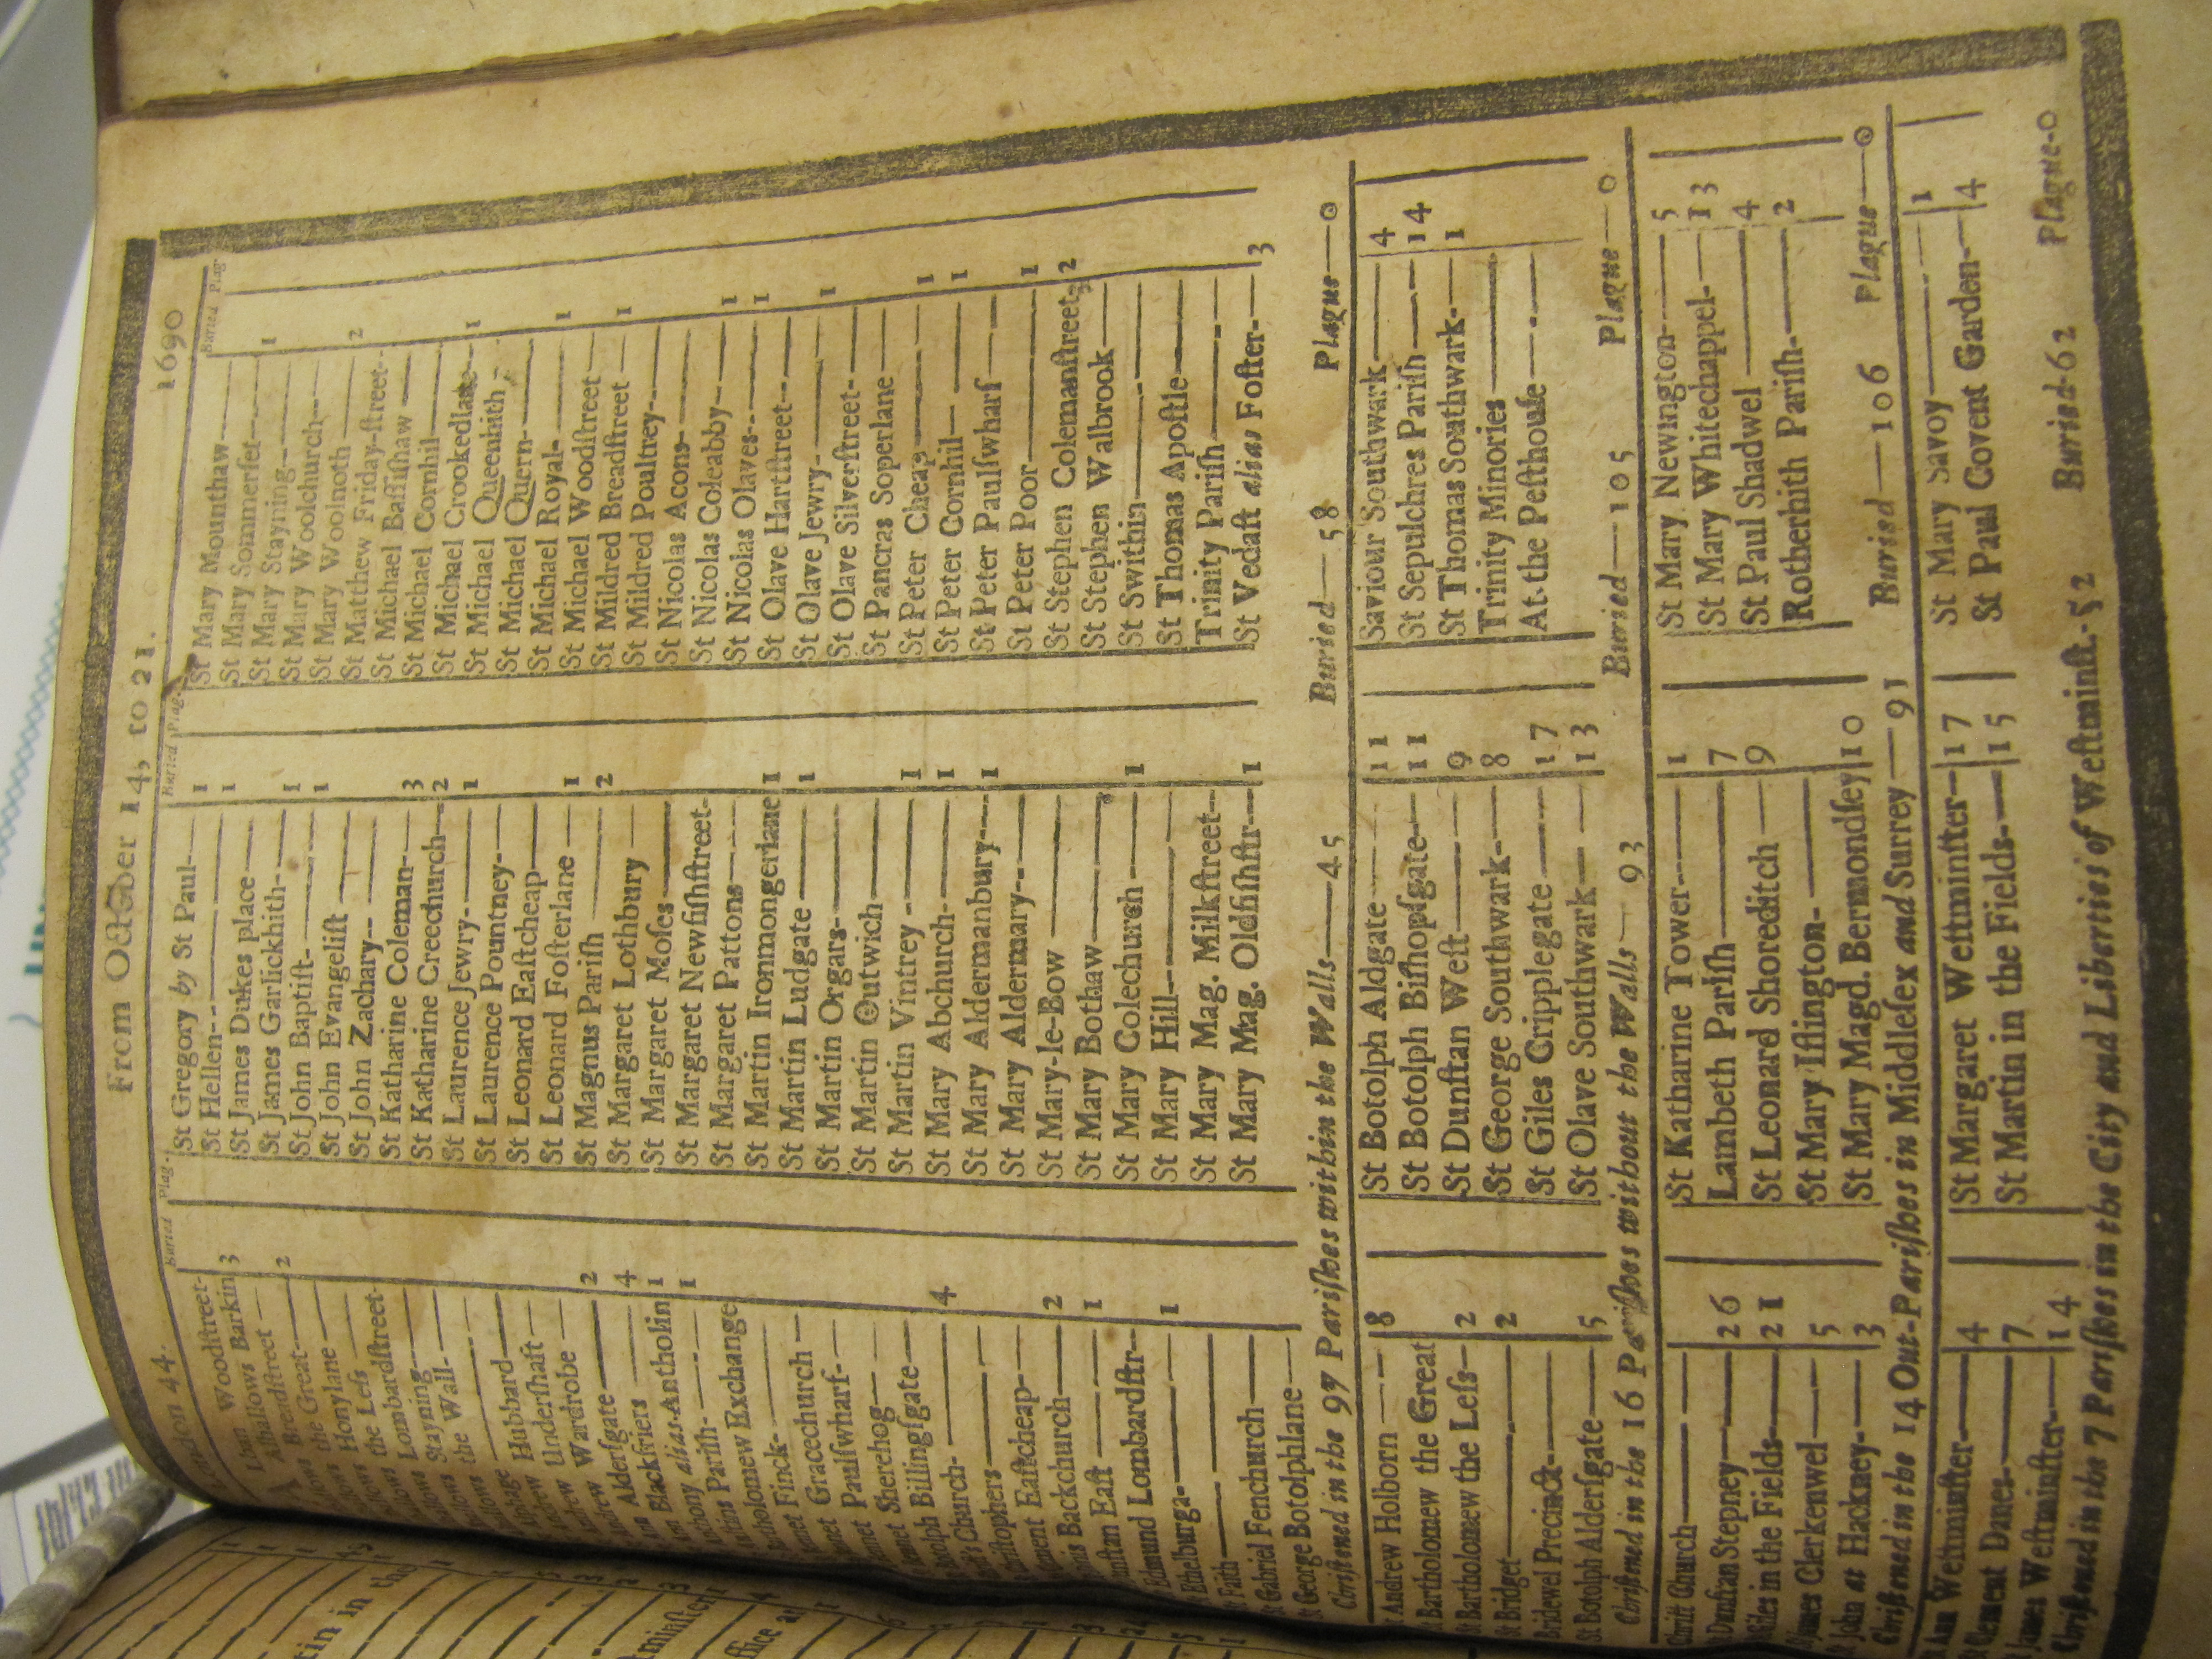 44. From October 14, to 21. 1690
Buried Plag.
Woodſtreet-
Alhallows Barkin 3
Breadſtreet —
the Great- 2
Honylane —
the Leſs —
Lombardſtreet-
Stayning—
the Wall-
Hubbard—
Underſhaft—
Wardrobe —
Alderſgate — 2
Blackfriers — 4
alias Antholin 1
Pariſh- — 1
Bartholomew Exchange
Finck-
Gracechurch —
Paulſwharf-
Sherehog—
Botolph Billingſgate—
Church- — 4
Chriſtophers—
Clement Eaſtcheap—
Backchurch— 2
Dunſtan Eaſt — 1
Edmund Lombardſtr--
Ethelburga- — 1
Faith—
Gabriel Fenchurch—
St George Botolphlane—
Buried Plag.
St Gregory by St Paul-— 1
St Hellen-- — 1
St James Dukes place—
St James Garlickhith-- 1
St John Baptiſt- — 1
St John Evangeliſt —
St John Zachary-- —
St Katharine Coleman-— 3
St Katharine Creechurch— 2
St Laurence Jewry- — 1
St Laurence Pountney-—
St Leonard Eaſtcheap—
St Leonard Foſterlane — 1
St Magnus Pariſh — 2
St Margaret Lothbury —
St Margaret Moſes—
St Margaret Newfiſhſtreet-
St Margaret Pattons—
St Martin Ironmongerlane 1
St Martin Ludgate — 1
St Martin Orgars- —
St Martin Outwich—
St Martin Vintrey - — 1
St Mary Abchurch- — 1
St Mary Aldermanbury--- 1
St Mary Aldermary--—
St Mary-le-Bow —
St Mary Bothaw—
St Mary Colechurch — 1
St Mary Hill-—
St Mary Mag. Milkſtreet--
St Mary Mag. Oldfiſhſtr-- 1
Buried Plag.
St Mary Mounthaw—
St Mary Sommerſet— 1
St Mary Stayning-—
St Mary Woolchurch—
St Mary Woolnoth — 2
St Matthew Friday-ſtreet-
St Michael Baſſiſhaw —
St Michael Cornhil—
St Michael Crookedlane— 1
St Michael Queenhith -
St Michael Quern-—
St Michael Royal- — 1
St Michael Woodſtreet—
St Mildred Breadſtreet — 1
St Mildred Poultney-—
St Nicolas Acons- —
St Nicolas Coleabby— 1
St Nicolas Olaves-- — 1
St Olave Hartſtreet--—
St Olave Jewry- — 1
St Olave Silverſtreet-—
St Pancras Soperlane—
St Peter Cheap — 1
St Peter Cornhil— — 1
St Peter Paulſwharf—
St Peter Poor— 1
St Stephen Colemanſtreet 2
St Stephen Walbrook—
St Swithin—
St Thomas Apoſtle—
Trinity Pariſh—
St Vedaſt alias Foſter-— 3
Chriſtned in the 97 Pariſhes within the Walls—45 Buried—58 Plague—0
St Andrew Holborn — 8
St Bartholomew the Great
St Bartholomew the Leſs— 2
St Bridget— 2
Bridewel Precinct-—
St Botolph Alderſgate— 5
St Botolph Aldgate— 11
St Botolph Biſhopſgate-— 11
St Dunſtan Weſt— 9
St George Southwark-— 8
St Giles Cripplegate— 17
St Olave Southwark— 13
Saviour Southwark— 4
St Sepulchres Pariſh— 14
St Thomas Southwark-— 1
Trinity Minories—
At the Peſthouſe —
Chriſtned in the 16 Pariſhes without the Walls—93 Buried—105 Plague—0
Chriſt Church—
Dunſtan Stepney— 26
Giles in the Fields— 21
James Clerkenwel— 5
St John at Hackney-— 3
St Katharine Tower— 1
Lambeth Pariſh— 7
St Leonard Shoreditch — 9
St Mary Iſlington- —
St Mary Magd. Bermondſey 10
St Mary Newington-— 5
St Mary Whitechappel-— 13
St Paul Shadwel — 4
Rotherhith Pariſh-— 2
Chriſtned in the 14 Out-Pariſhes in Middleſex and Surrey—91 Buried—106 Plague—0
Ann Weſtminſter— 4
Clement Danes-— 7
James Weſtminſter-— 14
St Margaret Weſtminſter— 17
St Martin in the Fields-— 15
St Mary Savoy— 1
St Paul Covent Garden-— 4
Chriſtned in the 7 Pariſhes in the City and Liberties of Weſtminſt.-52 Buried-62 Plague-0